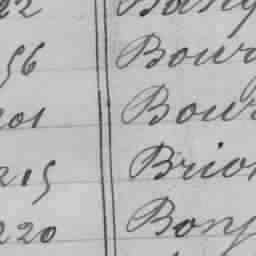 22 Bang
56 Bour
201 Bour
215 Brion
220 Bonj